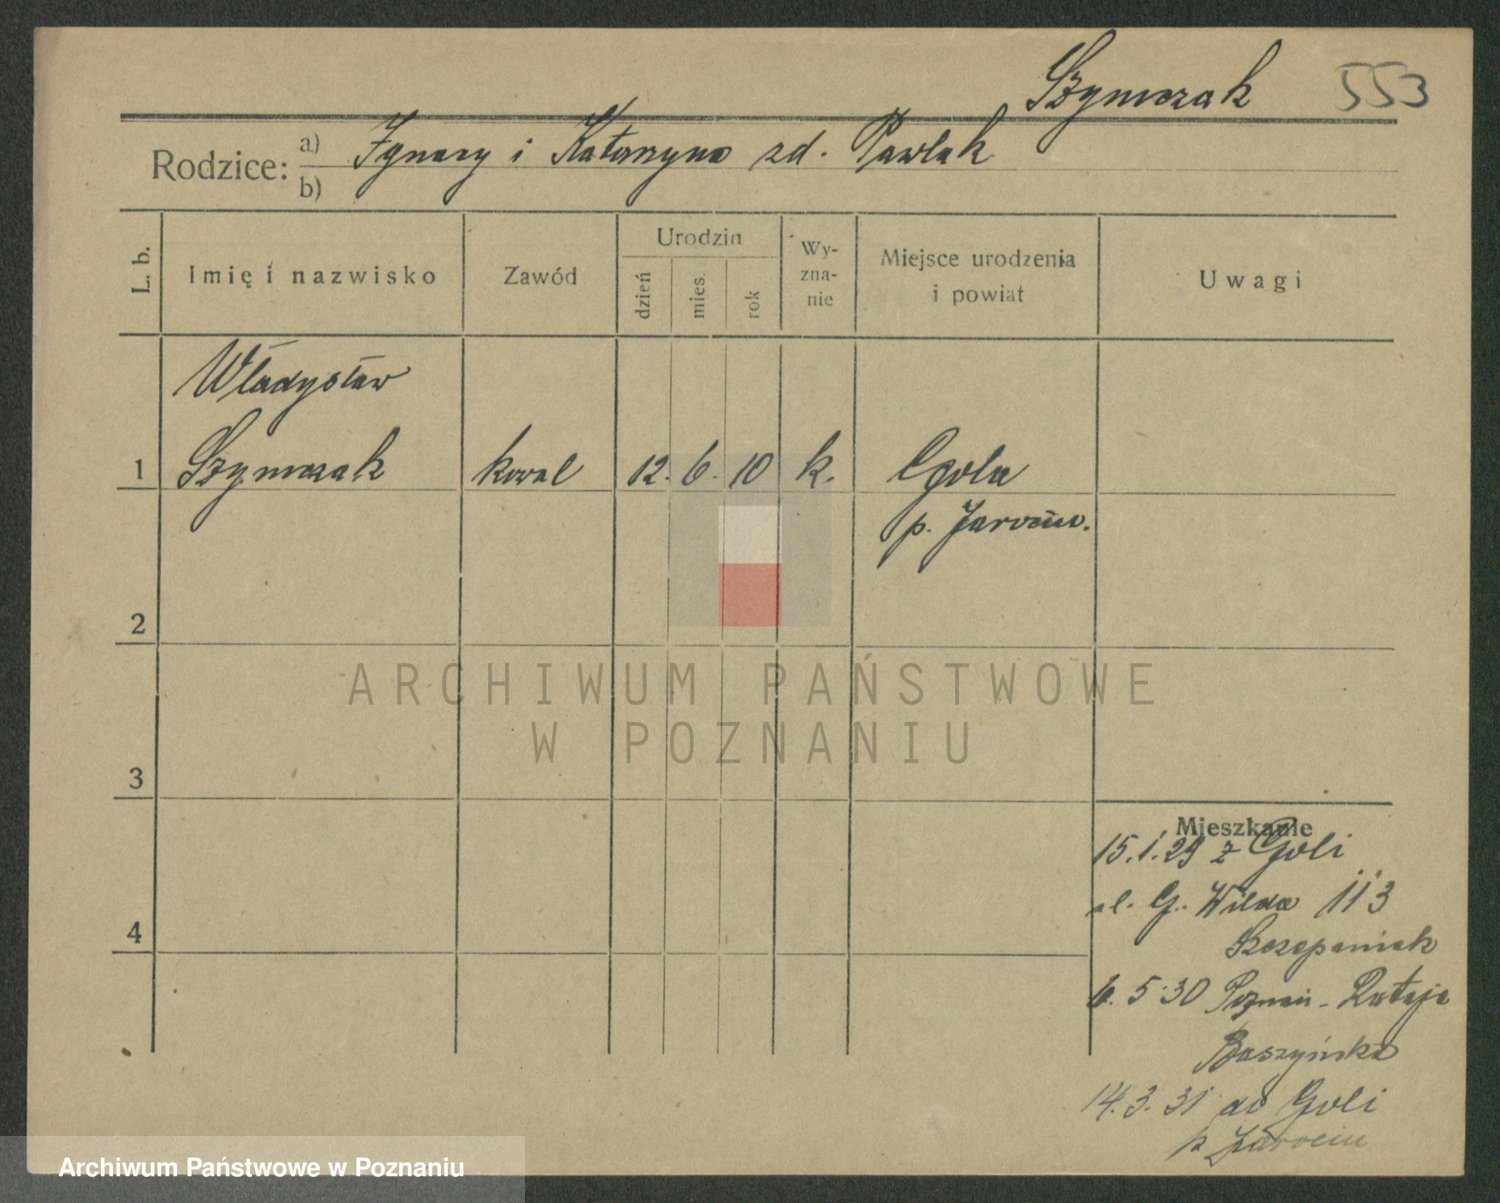 Szymczak 553
Rodzice: a) Ignacy i Katarzyna zd. Pawlak
b)
L. b. Imię i nazwisko Zawód Urodzin dzień mies. rok Wy-zna-nie Miejsce urodzenia i powiat Uwagi
Władysław
1 Szymczak kowal 12. 6. 10 k. Gola
p. Jarocin.
2
ARCHIWUM PAŃSTWOWE
W POZNANIU
3
Mieszkanie
15.1.29 z Goli
ul. G. Wilda 113
Szczepaniak
4
6. 5 30 Poznań - Rataje
Baszyńska
14. 3. 31 do Goli
p Jarocin
Archiwum Państwowe w Poznaniu